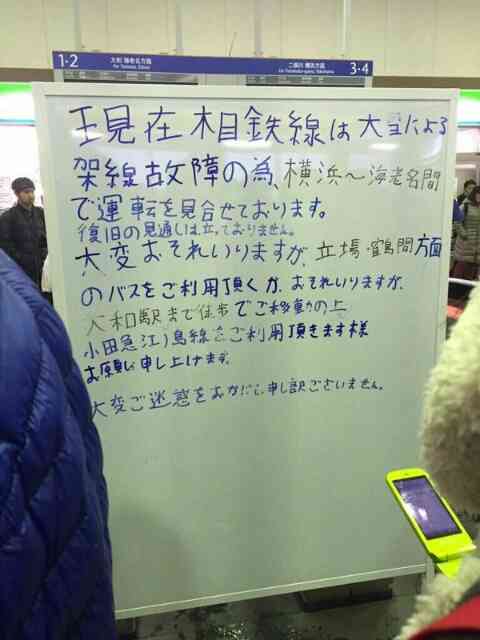 1・2 大和 海老名方面
二俣川 横浜方面 3・4
現在相鉄線は大雪による
架線故障の為、横浜～海老名間
で運転を見合せております。
復旧の見通しは立っておりません。
大変おそれいりますが、立場・鶴間方面
のバスをご利用頂くか、おそれいりますが、
大和駅まで徒歩でご移動の上
小田急江ノ島線をご利用頂きます様
お願い申し上げます。
大変ご迷惑をおかけし申し訳ございません。